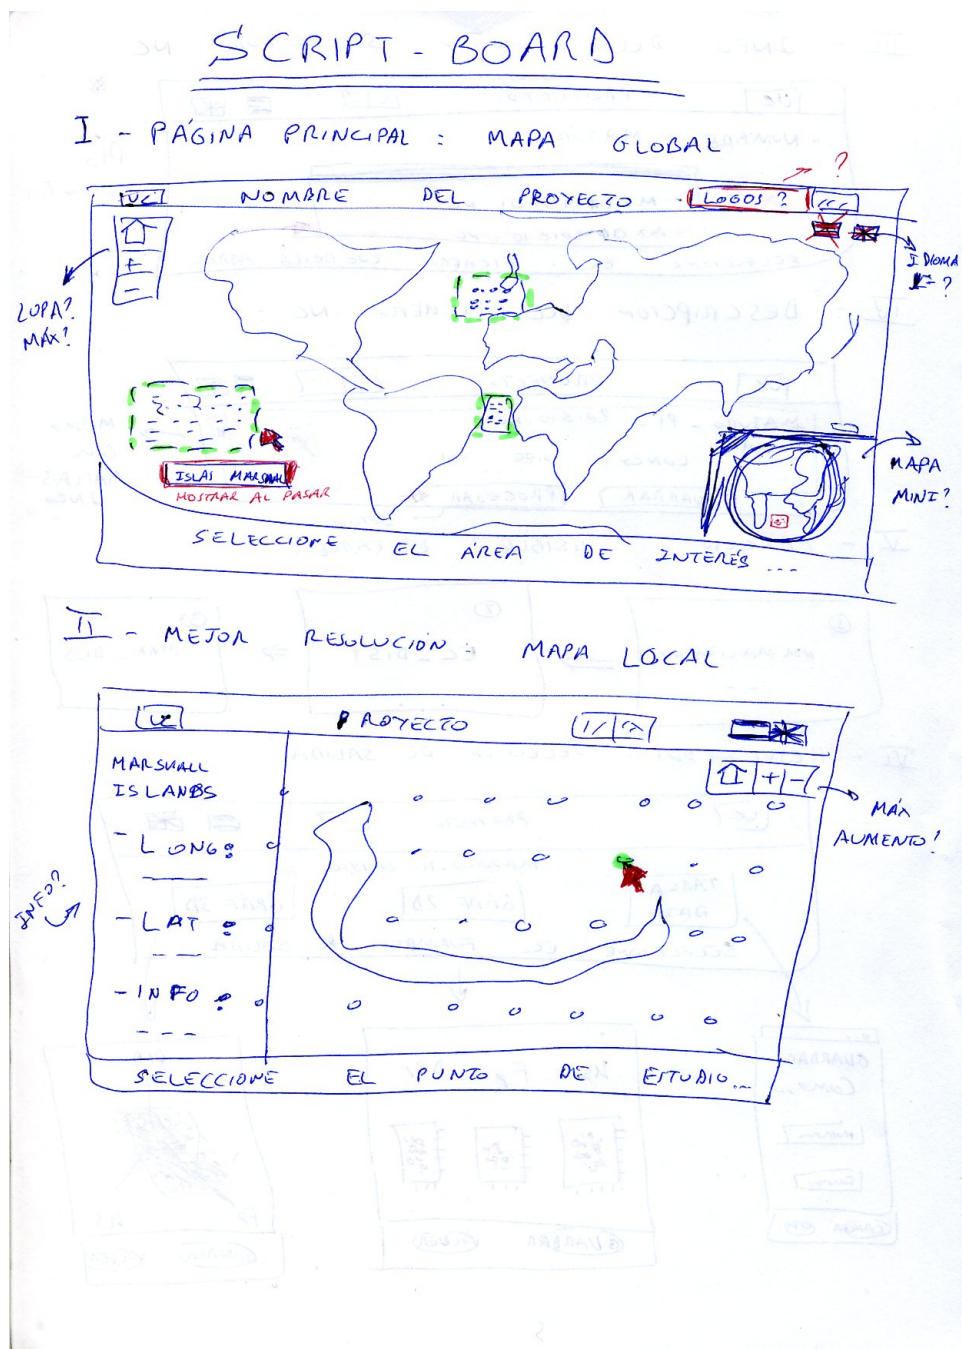 SCRIPT - BOARD
I - PÁGINA PRINCIPAL : MAPA GLOBAL
?
UC NOMBRE DEL PROYECTO LOGOS ?
+
-
IDIOMA
?
LUPA?
MÁX?
ISLAS MARSHALL
MOSTRAR AL PASAR
MAPA
MINI?
SELECCIONE EL ÁREA DE INTERÉS ...
II - MEJOR RESOLUCIÓN : MAPA LOCAL
UC PROYECTO
MARSHALL
ISLANDS
+ -
MÁX
AUMENTO!
- LONG :
INFO?
- LAT :
- INFO :
SELECCIONE EL PUNTO DE ESTUDIO...